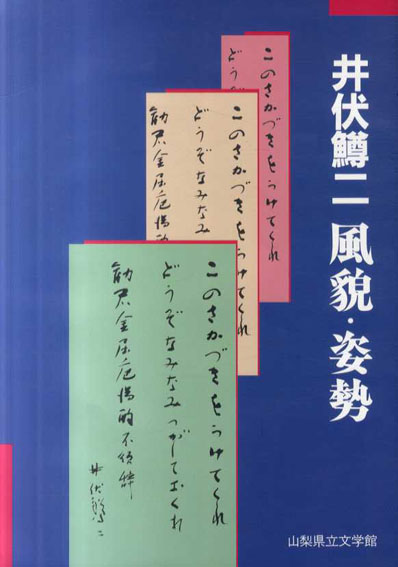 井伏鱒二 風貌・姿勢
山梨県立文学館
このさかづきをうけてくれ
どうぞ
このさかづきをうけてくれ
どうぞなみなみ
勧君金屈巵満酌
このさかづきをうけてくれ
どうぞなみなみつがしておくれ
勧君金屈巵満酌不須辞
井伏鱒二